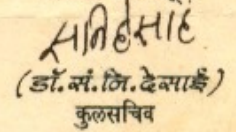 (डॉ. सं. नि. देसाई)
कुलसचिव